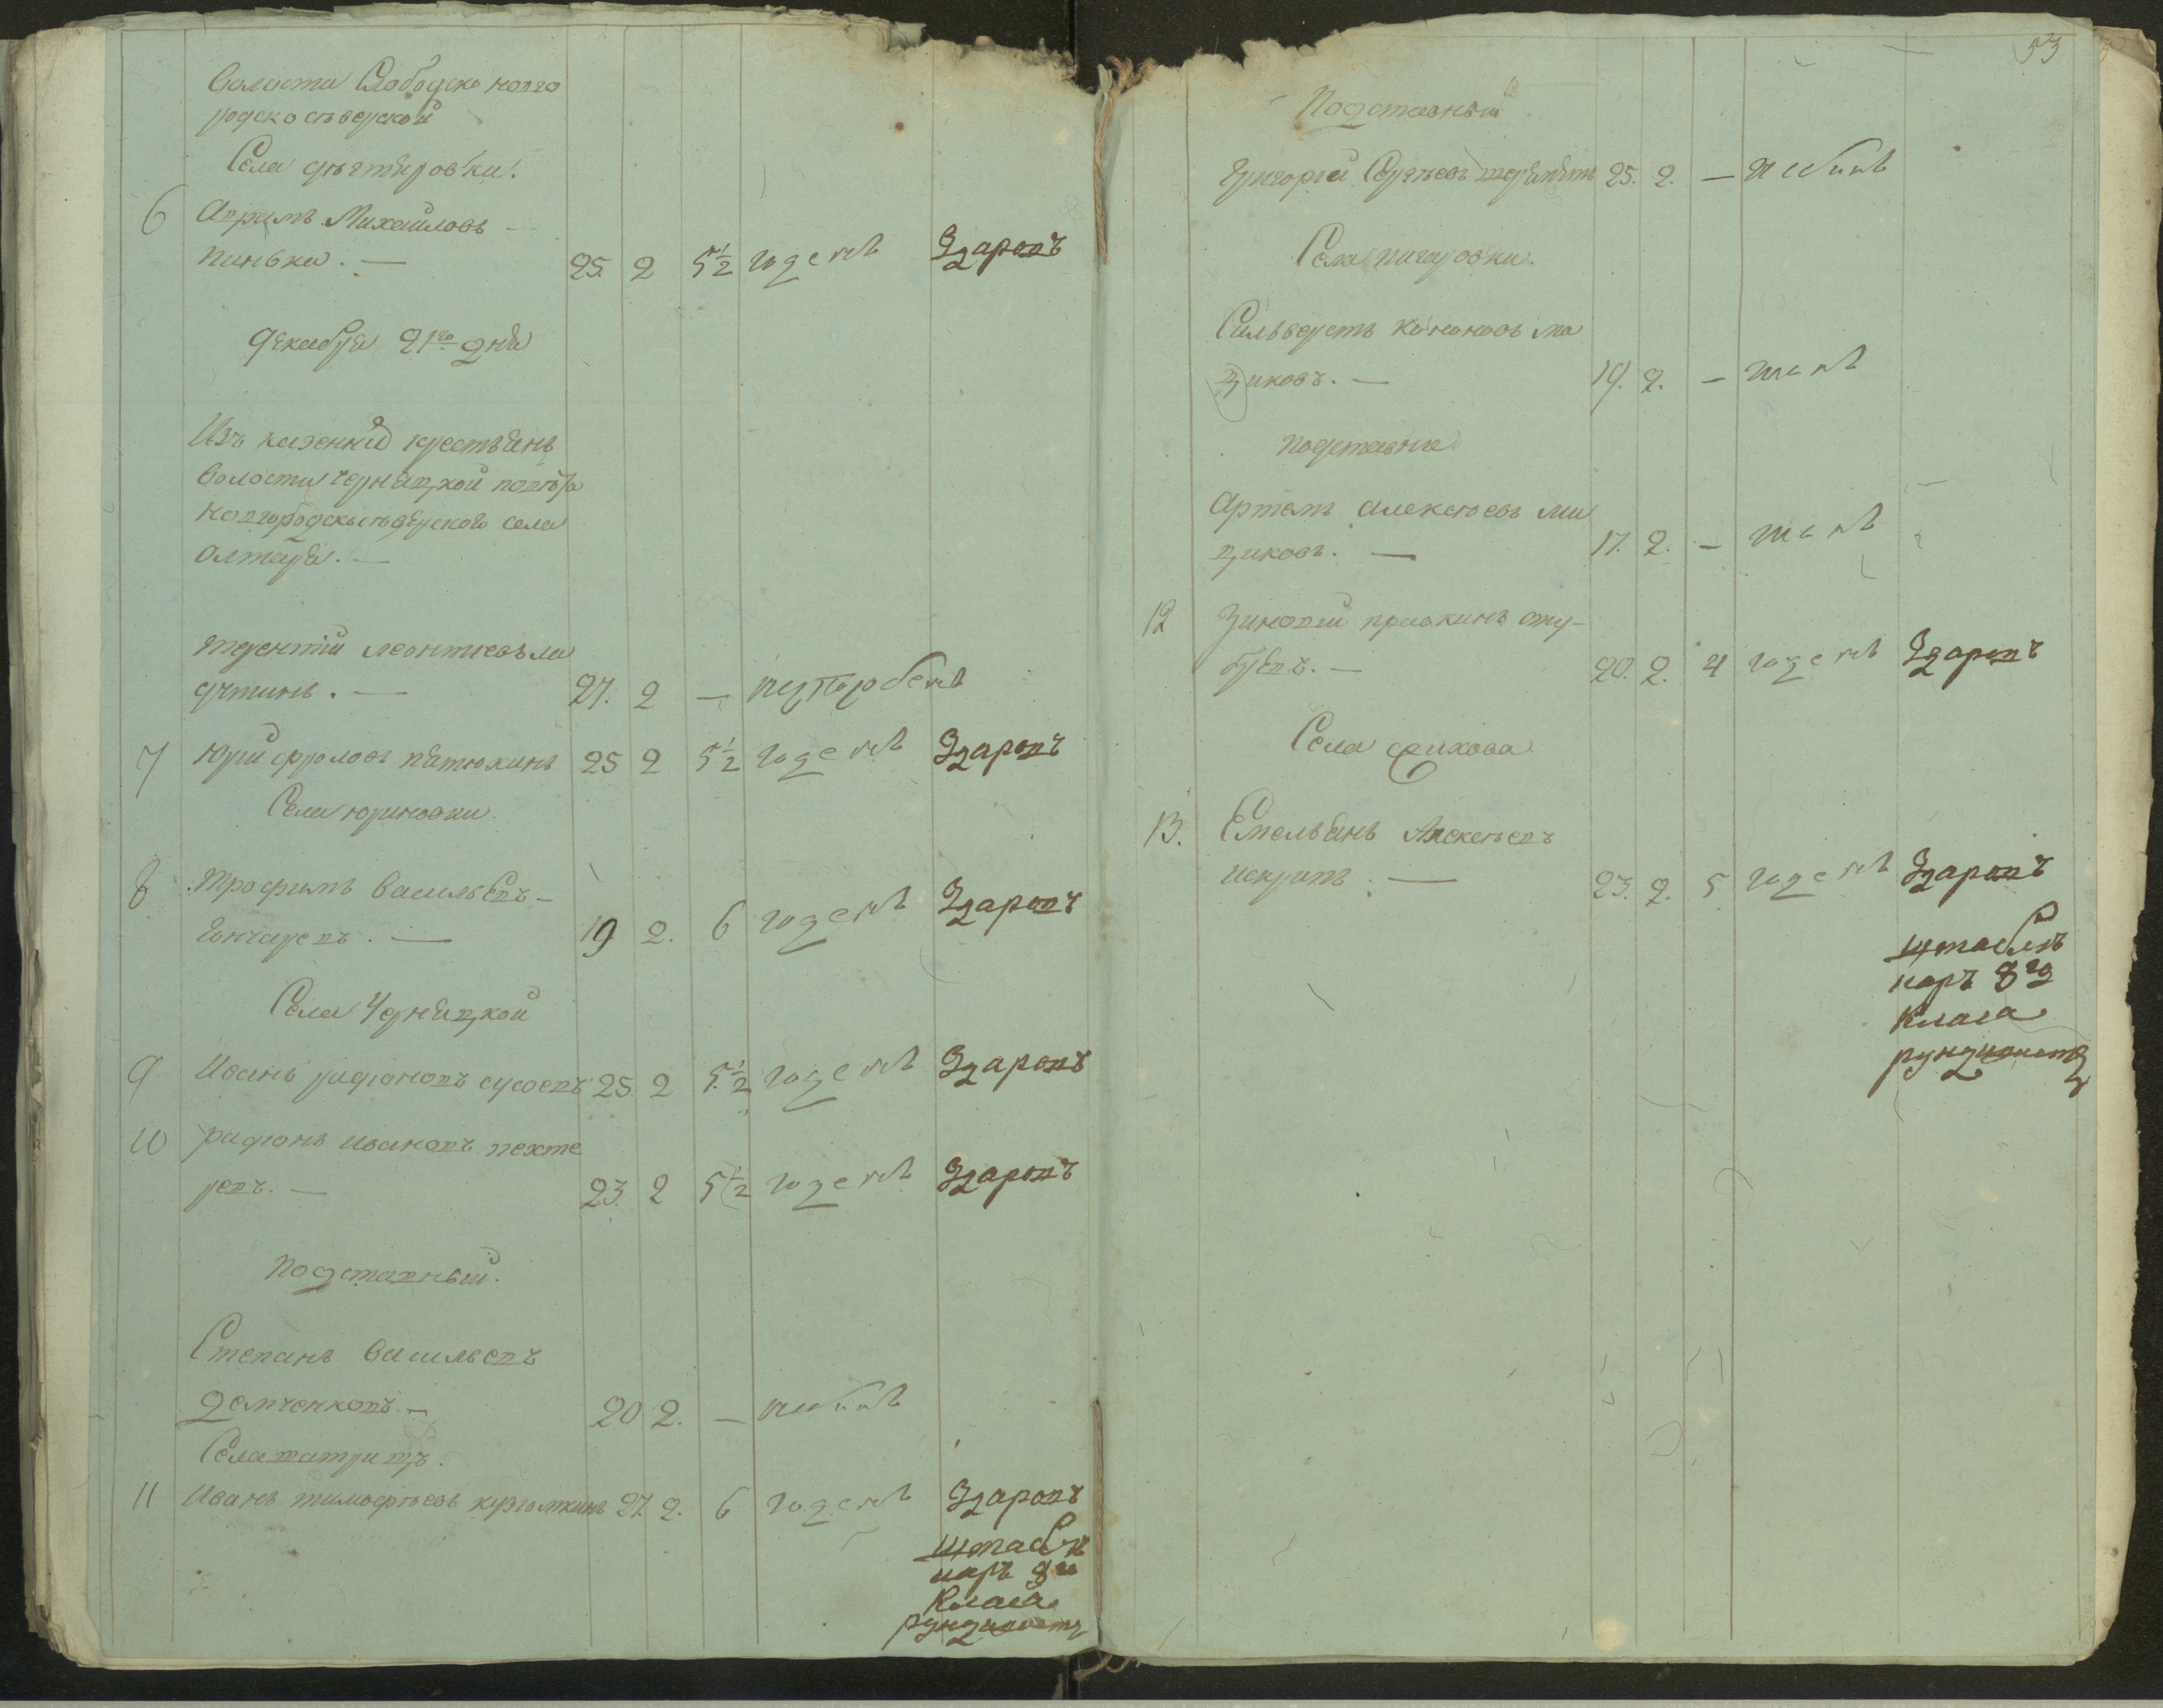 Волости Слободско новго
родско северской
Села дехтяровки.
6 Аврамъ Михайловъ —
пинька. — 25. 2 5½ годенъ Здаровъ
Декабря 21го дня
Изъ казенних крестьянъ
волости чернацкой повета
новгородскосеверского села
Олтаря. —
терентий леонтиевъ ла
27. 2 —
7 юрий фроловъ пятюхинъ 25 2 5½ годенъ Здаровъ
Села юриновки.
8 трофимъ васильевъ —
гончаревъ. — 19 2. 6 годенъ Здаровъ
Села Чернацкой
9 Иванъ радионовъ сусоевъ 25. 2 5½ годенъ Здаровъ
10 радионъ ивановъ пехте
ревъ. — 23. 2 5½ годенъ Здаровъ
подставный.
Степанъ васильевъ
демченковъ. — 20 2. —
Села
11 Иванъ тимофеевъ 27. 2. 6 годенъ Здаровъ
штабъ ле
каръ 8го
Класа
53
Подставный
Григорий Сергеевъ 25. 2. —
Села пигаровки.
Сильверстъ кононовъ ма
цуковъ. — 19. 2. — такъ
подставные
Артемъ алексеевъ ма
цуковъ. — 17. 2. — такъ
12 Зиновий
20. 2. 4 годенъ Здаровъ
Села
13. Емельянъ Алексеевъ
искринъ. — 23. 2. 5 годенъ Здаровъ
штабъ ле
каръ 8го
Класа